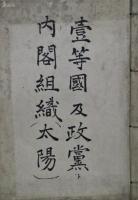 壹等國及政黨ト
内閣組織（太陽）